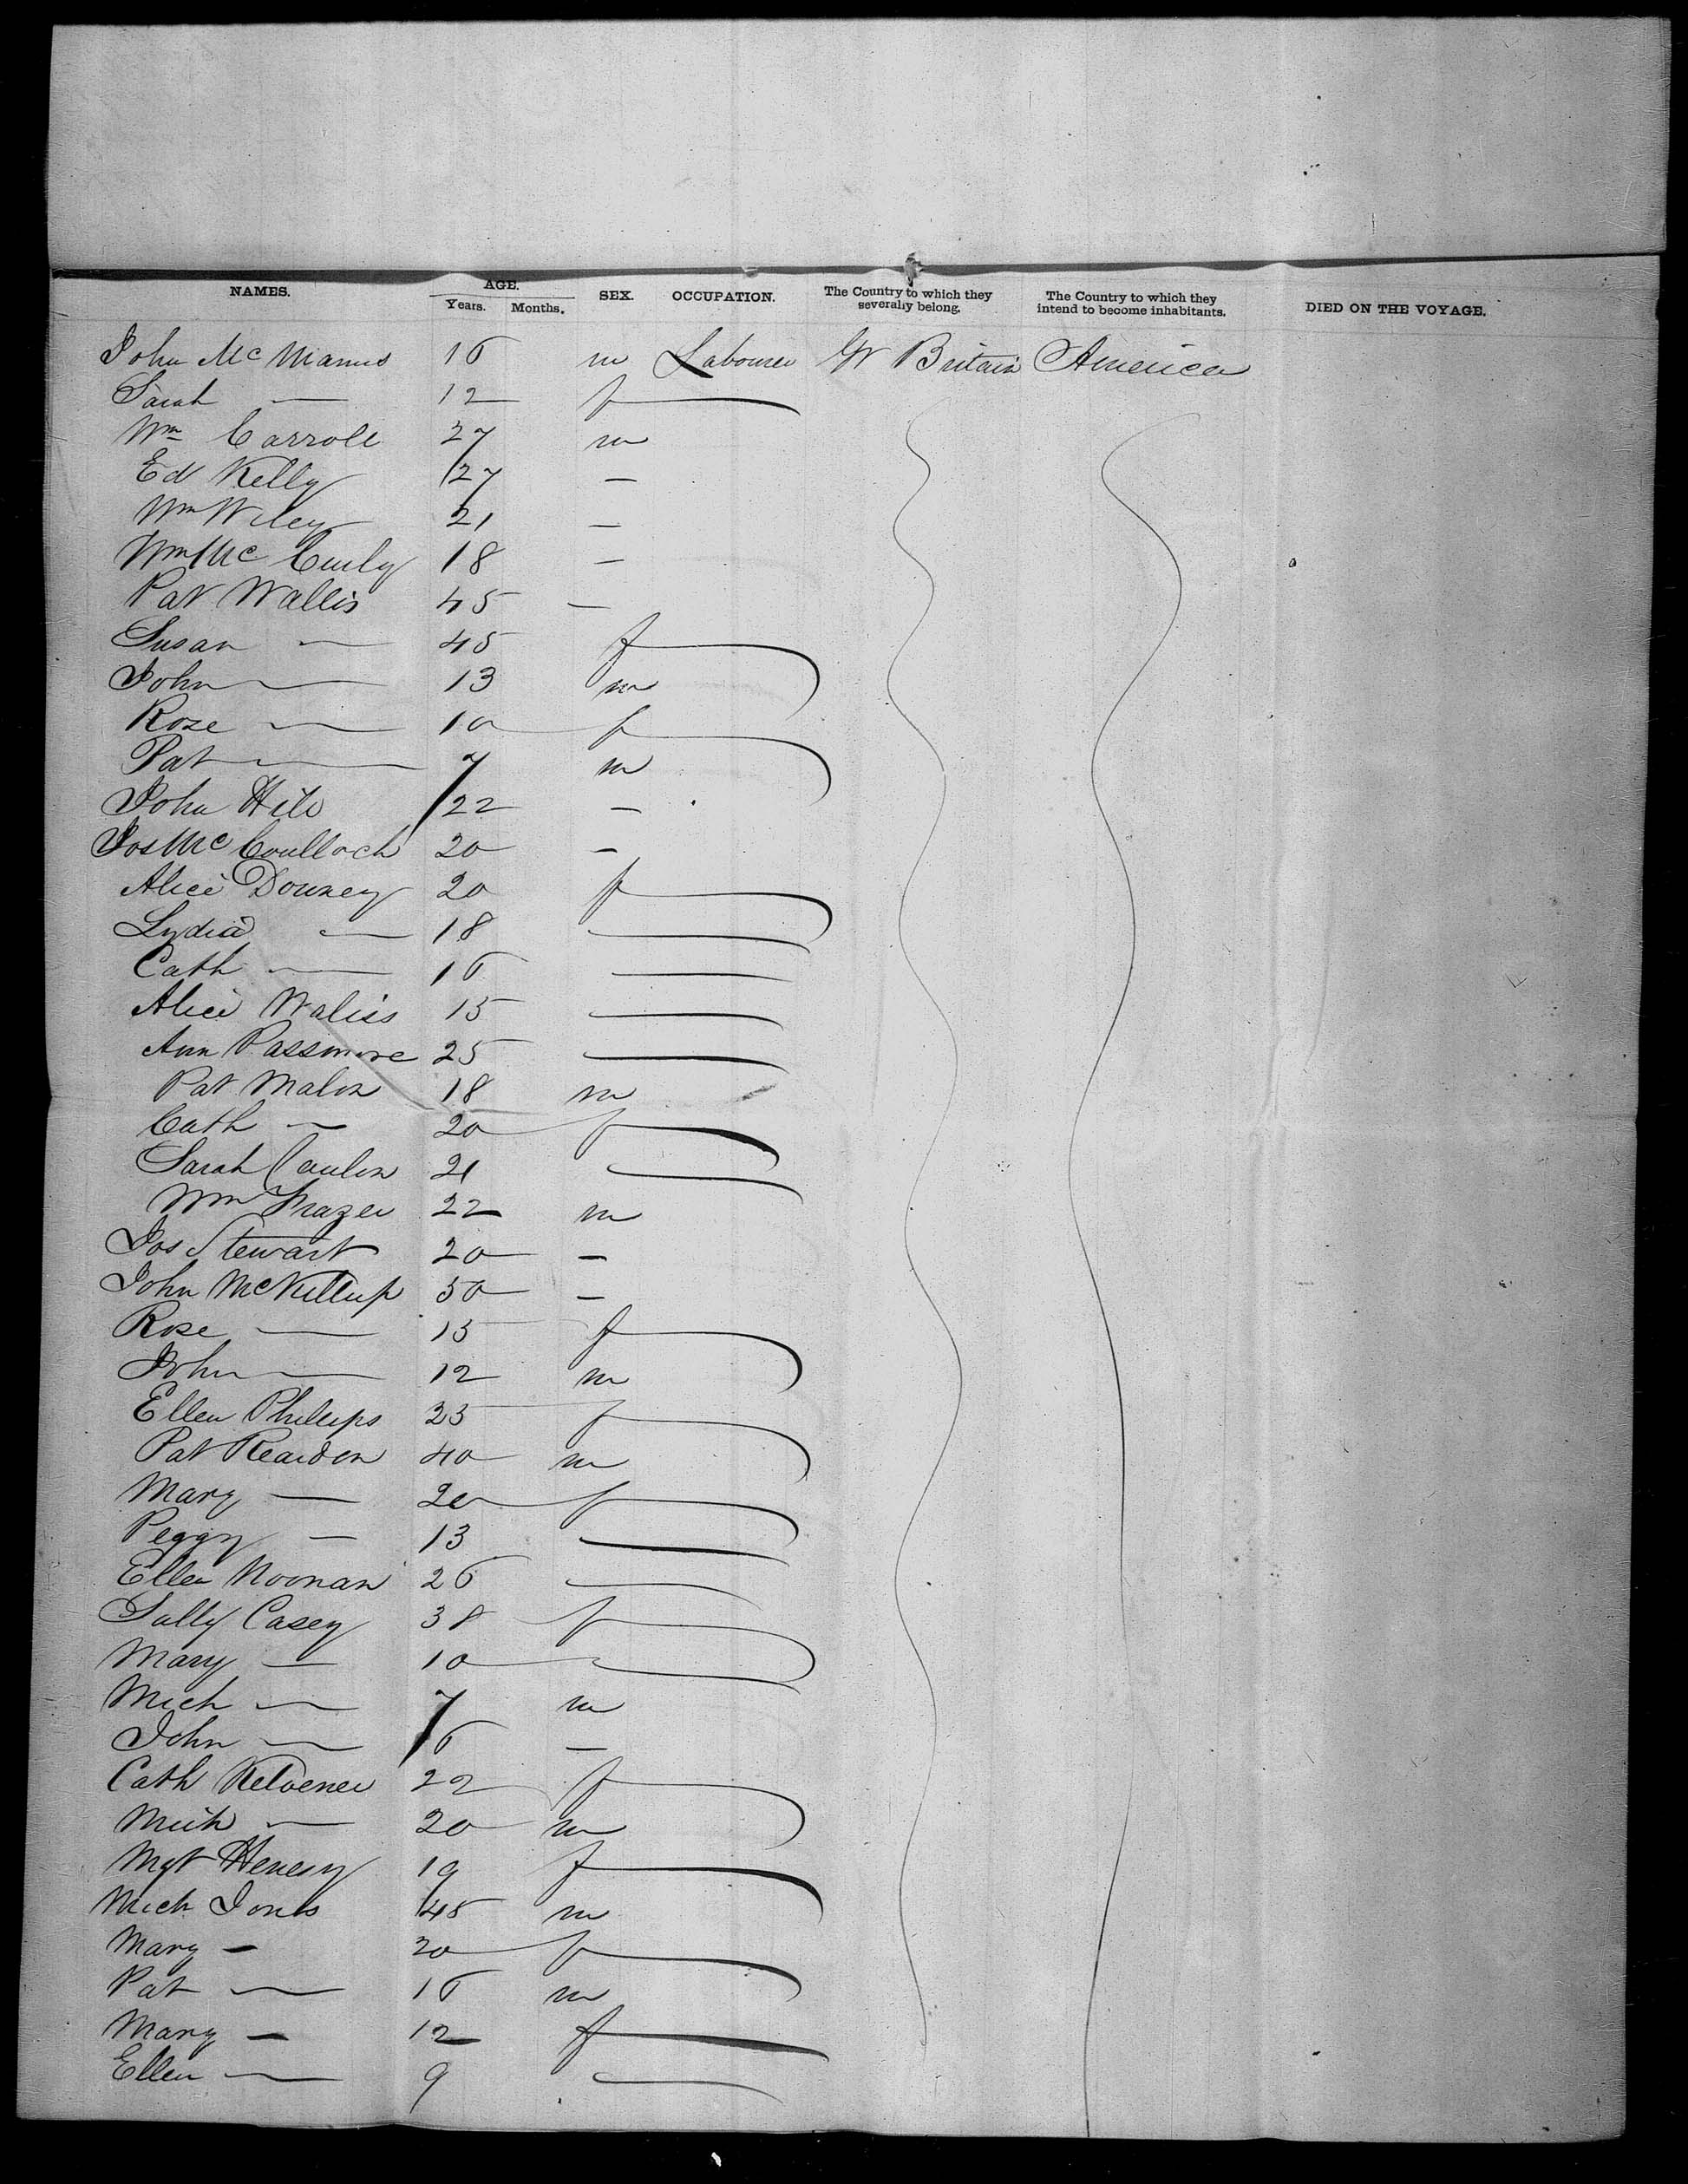 NAMES. AGE. Years. Months. SEX. OCCUPATION. The Country to which they severally belong. The Country to which they intend to become inhabitants. DIED ON THE VOYAGE.
John McManus 16 m Labourer Gt Britain America
Sarah — 12 f
Wm Carroll 27 m
Ed Kelly 27 —
Wm Wiley 21 —
Wm McCurly 18 —
Pat Wallis 45 —
Susan — 45 f
John — 13 m
Rose — 10 f
Pat — 7 m
John Hill 22 —
Jos McCoulloch 20 —
Alice Downey 20 f
Lydia — 18 —
Cath — 16 —
Alice Waliss 15 —
Ann Passmore 25 —
Pat Malon 18 m
Cath — 20 f
Sarah Caulon 21 —
Wm Frazer 22 m
Jos Stewart 20 —
John McKillup 50 —
Rose — 15 f
John — 12 m
Ellen Phillips 25 f
Pat Reardon 40 m
Mary — 20 f
Peggy — 13 —
Ellen Noonan 26 —
Sally Casey 38 f
Mary — 10 —
Mich — 7 m
John — 6 —
Cath 22 f
Mich — 20 m
Mgt Henesy 19 f
Mich Jones 45 m
Mary — 20 f
Pat — 16 m
Mary — 12 f
Ellen — 9 —